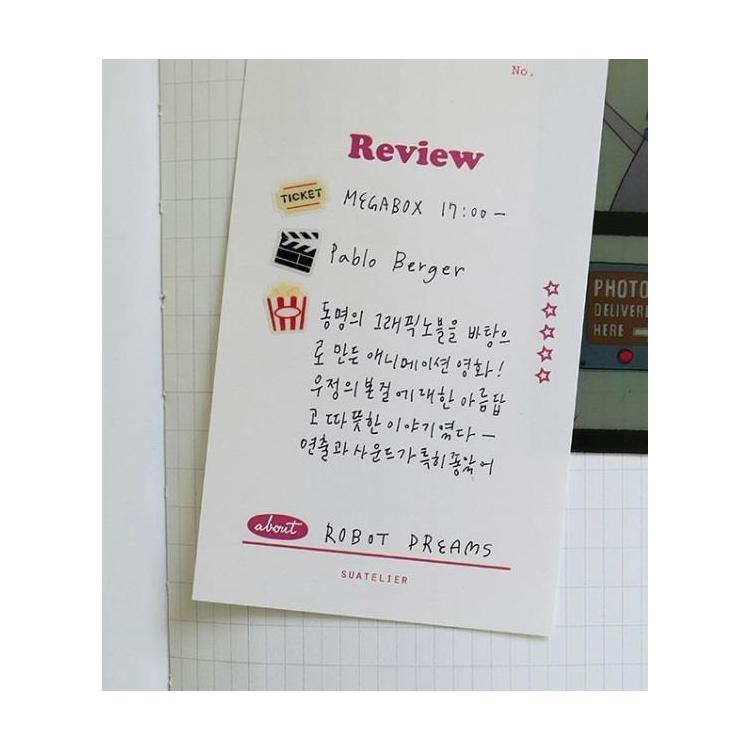 No.
Review
TICKET MEGABOX 17:00 –
Pablo Berger
동명의 그래픽노블을 바탕으
로 만든 애니메이션 영화!
우정의 본결에 대한 아름답
고 따뜻한 이야기였다 –
연출과 사운드가 특히 좋았어
about ROBOT DREAMS
SUATELIER
PHOTO
DELIVERE
HERE